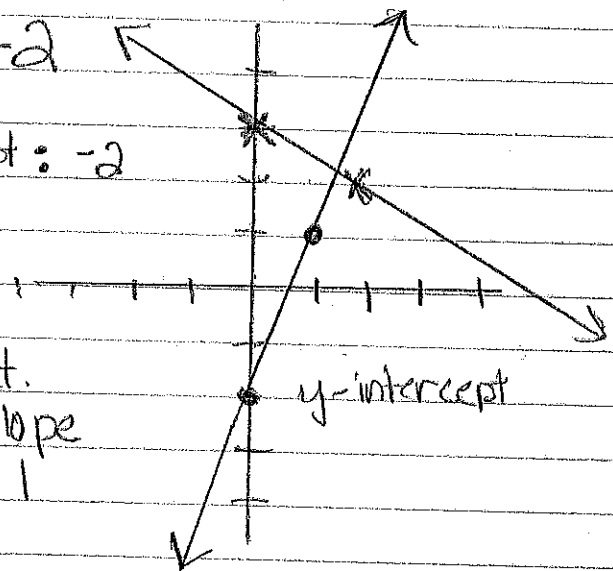 -2
t: -2
t.
y-intercept
lope
1